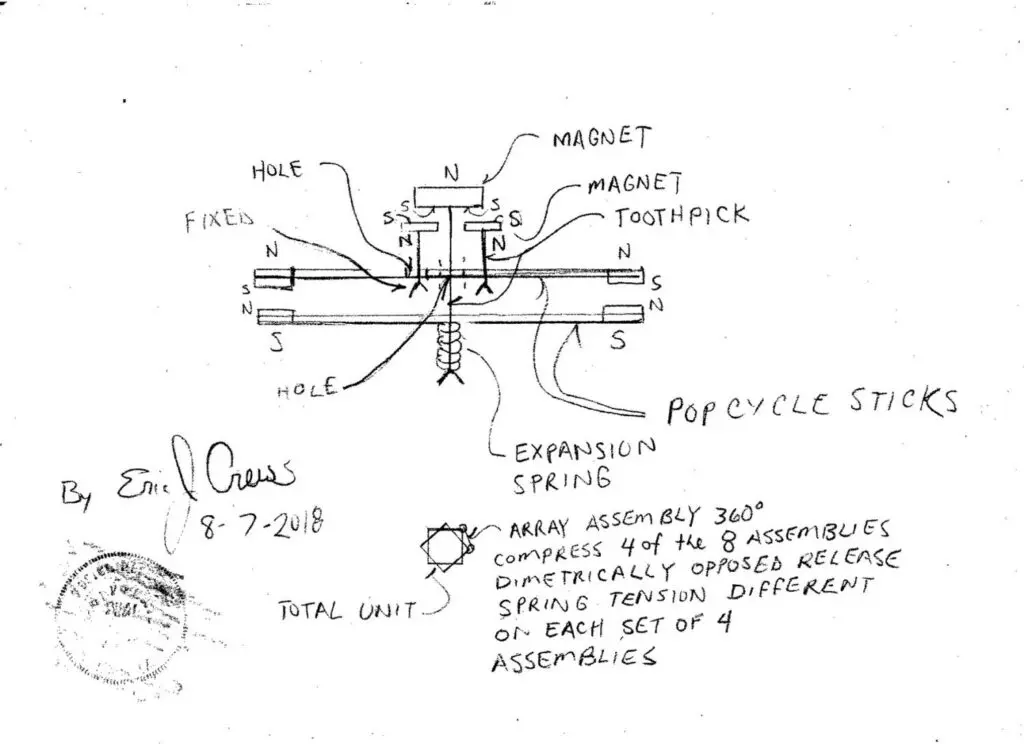 MAGNET
HOLE
N
MAGNET
S S
FIXED
S S
TOOTHPICK
N N
N N
S S
N N
S S
HOLE
POPCYCLE STICKS
EXPANSION
SPRING
By Eric J Crews
8-7-2018
ARRAY ASSEMBLY 360°
COMPRESS 4 of the 8 ASSEMBLIES
DIMETRICALLY OPPOSED RELEASE
SPRING TENSION DIFFERENT
ON EACH SET OF 4
ASSEMBLIES
TOTAL UNIT